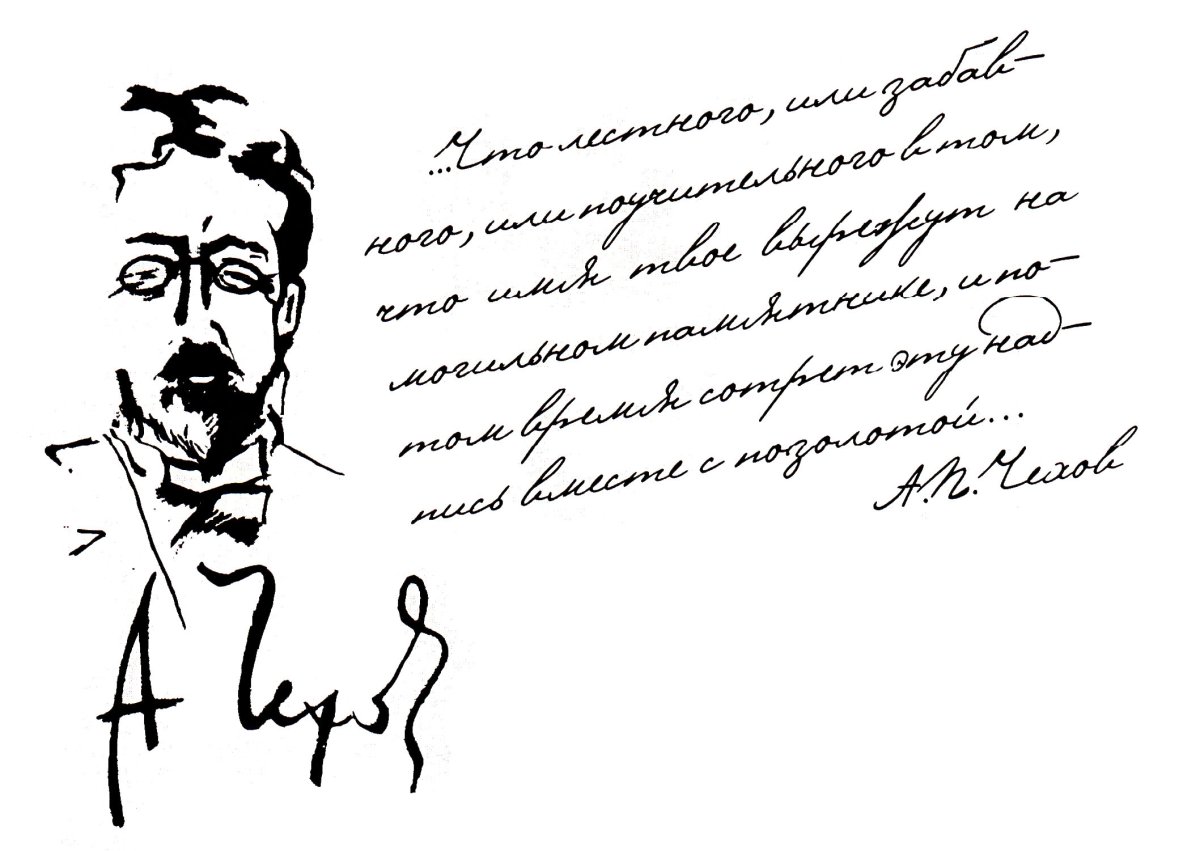 ...Что лестного, или забав-
ного, или поучительного в том,
что имя твое вырежут на
могильном памятнике, и по-
том время сотрет эту над-
пись вместе с позолотой...
А.П.Чехов
А Чехов